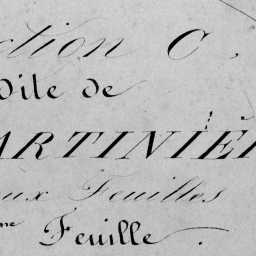 ction C,
Dite de
ARTINIÈR
eux Feuilles
me Feuille.